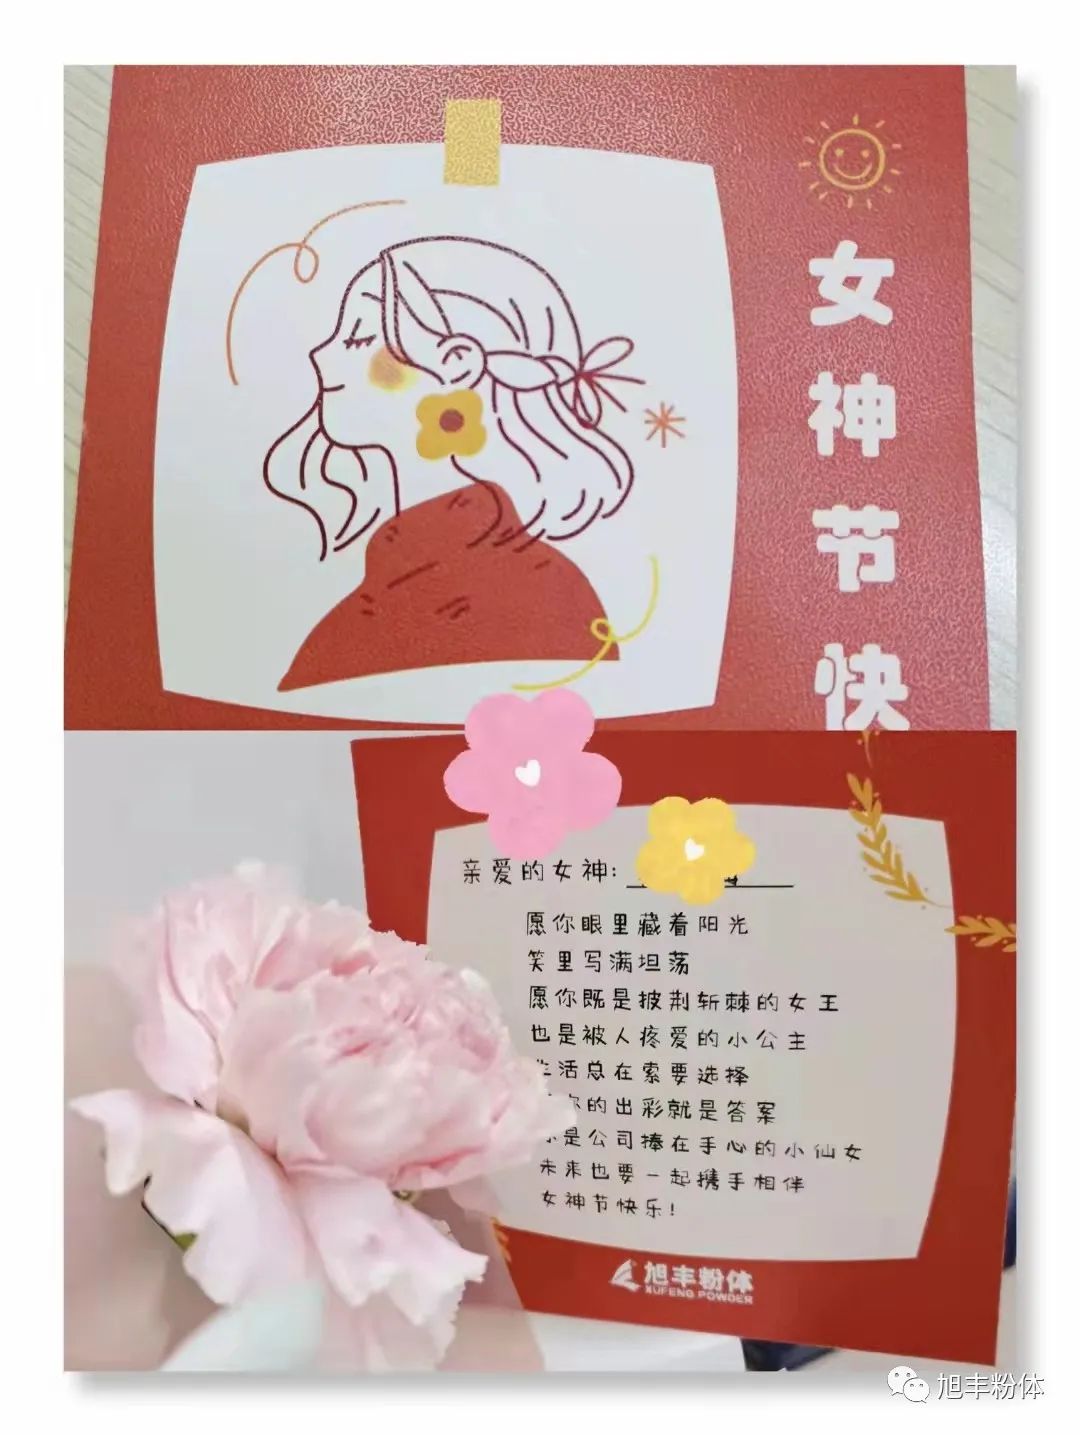 女神节快
亲爱的女神:
愿你眼里藏着阳光
笑里写满坦荡
愿你既是披荆斩棘的女王
也是被人疼爱的小公主
活总在索要选择
你的出彩就是答案
是公司捧在手心的小仙女
未来也要一起携手相伴
女神节快乐!
旭丰粉体
XUFENG POWDER
旭丰粉体